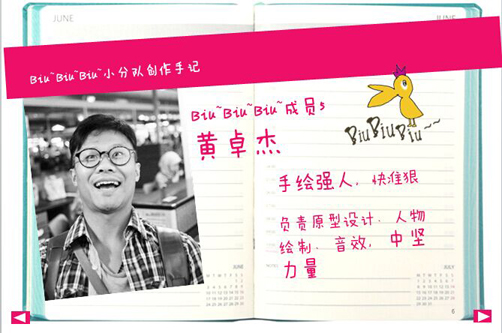 JUNE
JUNE
Biu~Biu~Biu~小分队创作手记
Biu~Biu~Biu~成员5
黄卓杰
BiuBiuBiu~~
手绘强人，快准狠
负责原型设计、人物
绘制、音效，中坚
力量
NOTES
JUNE
JULY
M T W T F S S
M T W T F S S
6